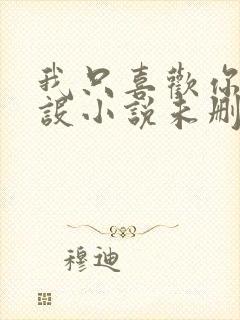 我只喜歡你
設小說未刪
穆迪